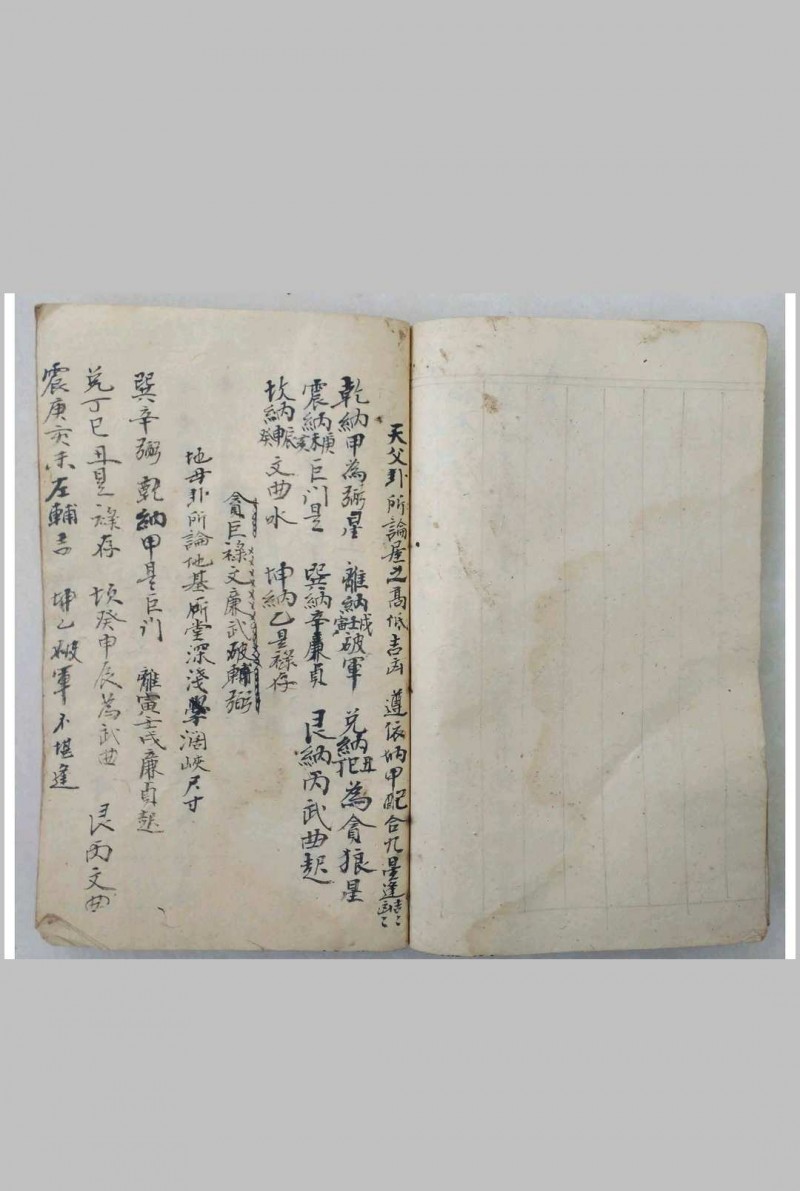 天父卦所論屋之高低吉凶 遵依納甲配合九星逢吉凶
乾納甲為弼星 離納寅壬戌破軍 兌納丁巳丑為貪狼星
震納庚亥未巨门是 巽納辛廉貞 艮納丙武曲起
坎納癸申辰文曲水 坤納乙是祿存
貪巨祿文廉武破輔弼
地母卦所論地基所堂深淺濶峽尺寸
巽辛弼 乾納甲是巨门 離寅壬戌廉貞起
兌丁巳丑是祿存 坎癸申辰為武曲 艮丙文曲
震庚亥未左輔吉 坤乙破軍不堪逢